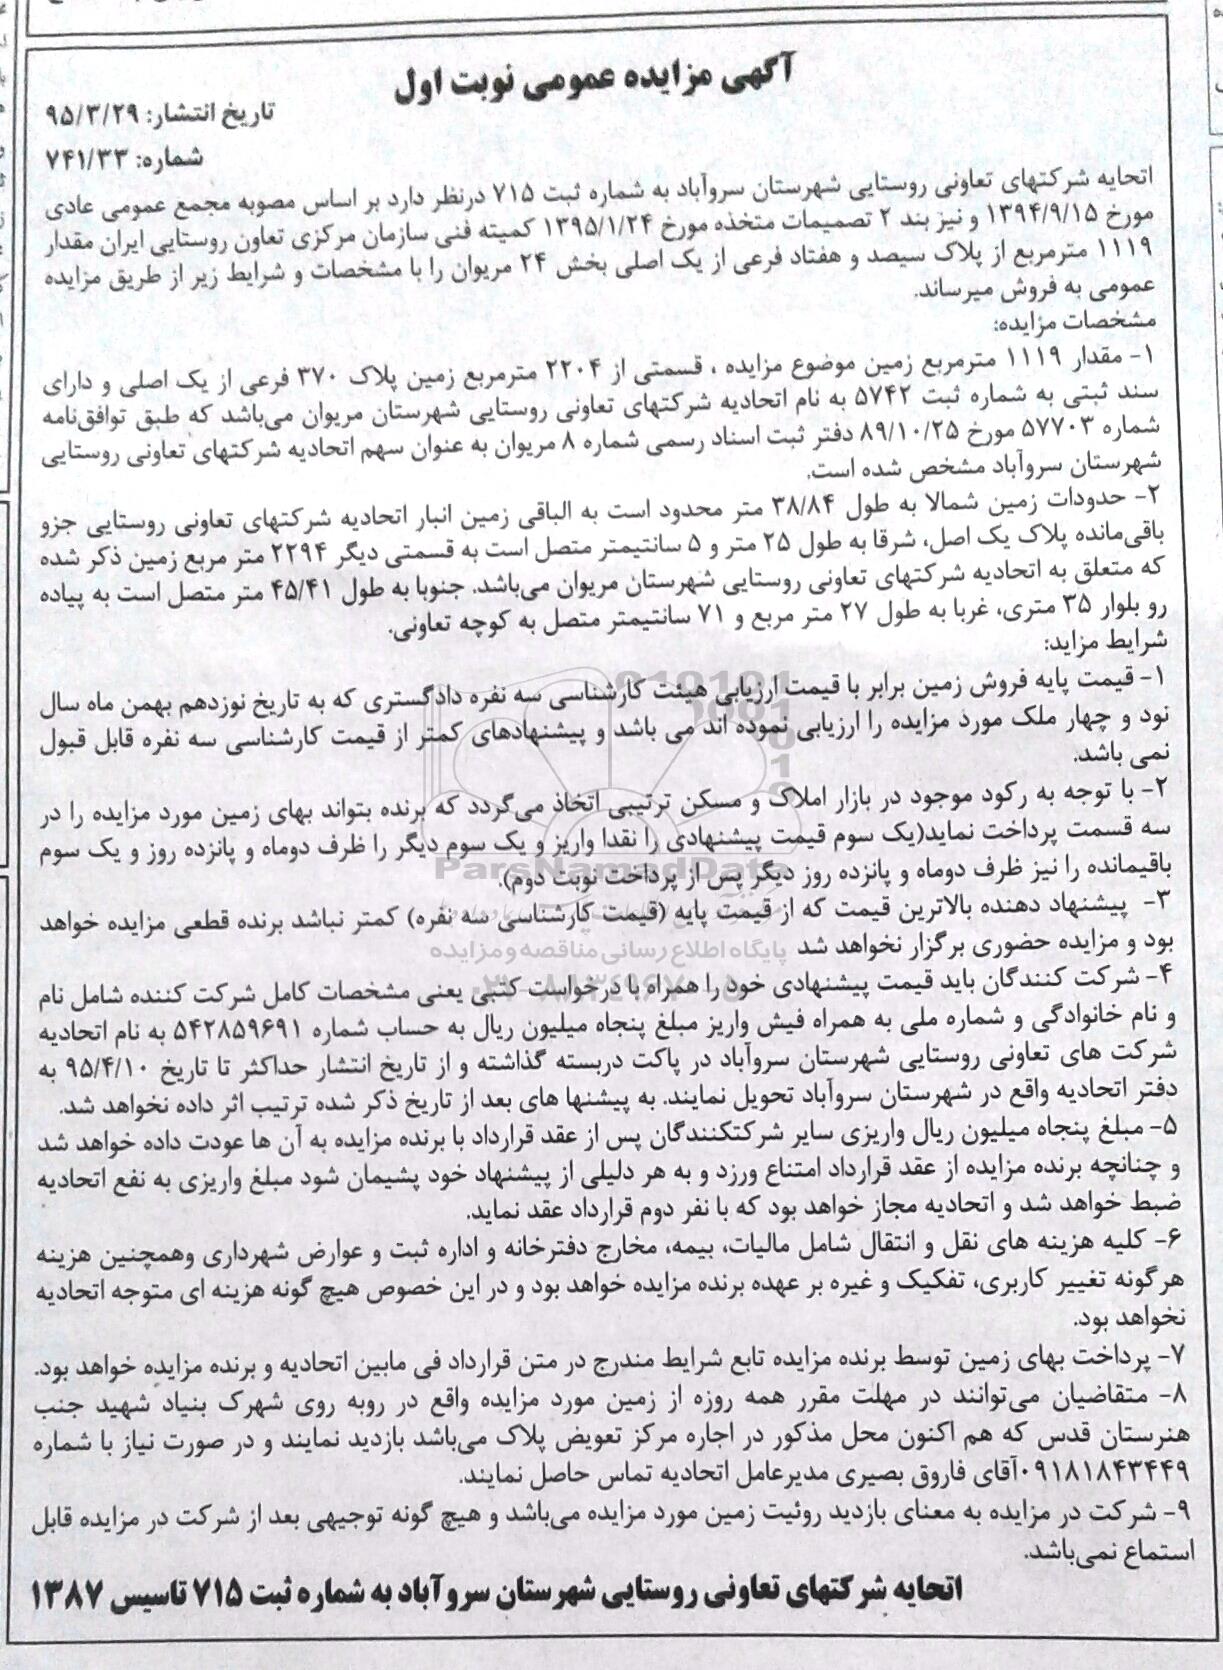 آگهی مزایده عمومی نوبت اول
تاریخ انتشار: ۹۵/۳/۲۹
شماره: ۷۴۱/۳۳
اتحایه شرکتهای تعاونی روستایی شهرستان سروآباد به شماره ثبت ۷۱۵ درنظر دارد بر اساس مصوبه مجمع عمومی عادی
مورخ ۱۳۹۴/۹/۱۵ و نیز بند ۲ تصمیمات متخذه مورخ ۱۳۹۵/۱/۲۴ کمیته فنی سازمان مرکزی تعاون روستایی ایران مقدار
۱۱۱۹ مترمربع از پلاک سیصد و هفتاد فرعی از یک اصلی بخش ۲۴ مریوان را با مشخصات و شرایط زیر از طریق مزایده
عمومی به فروش میرساند.
مشخصات مزایده:
۱- مقدار ۱۱۱۹ مترمربع زمین موضوع مزایده ، قسمتی از ۲۲۰۴ مترمربع زمین پلاک ۳۷۰ فرعی از یک اصلی و دارای
سند ثبتی به شماره ثبت ۵۷۴۲ به نام اتحادیه شرکتهای تعاونی روستایی شهرستان مریوان می‌باشد که طبق توافق‌نامه
شماره ۵۷۷۰۳ مورخ ۸۹/۱۰/۲۵ دفتر ثبت اسناد رسمی شماره ۸ مریوان به عنوان سهم اتحادیه شرکتهای تعاونی روستایی
شهرستان سروآباد مشخص شده است.
۲- حدودات زمین شمالا به طول ۳۸/۸۴ متر محدود است به الباقی زمین انبار اتحادیه شرکتهای تعاونی روستایی جزو
باقی‌مانده پلاک یک اصل، شرقا به طول ۲۵ متر و ۵ سانتیمتر متصل است به قسمتی دیگر ۲۲۹۴ متر مربع زمین ذکر شده
که متعلق به اتحادیه شرکتهای تعاونی روستایی شهرستان مریوان می‌باشد. جنوبا به طول ۴۵/۴۱ متر متصل است به پیاده
رو بلوار ۳۵ متری، غربا به طول ۲۷ متر مربع و ۷۱ سانتیمتر متصل به کوچه تعاونی.
شرایط مزاید:
۱- قیمت پایه فروش زمین برابر با قیمت ارزیابی هیئت کارشناسی سه نفره دادگستری که به تاریخ نوزدهم بهمن ماه سال
نود و چهار ملک مورد مزایده را ارزیابی نموده اند می باشد و پیشنهادهای کمتر از قیمت کارشناسی سه نفره قابل قبول
نمی باشد.
۲- با توجه به رکود موجود در بازار املاک و مسکن ترتیبی اتخاذ می‌گردد که برنده بتواند بهای زمین مورد مزایده را در
سه قسمت پرداخت نماید(یک سوم قیمت پیشنهادی را نقدا واریز و یک سوم دیگر را ظرف دوماه و پانزده روز و یک سوم
باقیمانده را نیز ظرف دوماه و پانزده روز دیگر پس از پرداخت نوبت دوم).
ParsNamadData
۳- پیشنهاد دهنده بالاترین قیمت که از قیمت پایه (قیمت کارشناسی سه نفره) کمتر نباشد برنده قطعی مزایده خواهد
بود و مزایده حضوری برگزار نخواهد شد
پایگاه اطلاع رسانی مناقصه و مزایده
۴- شرکت کنندگان باید قیمت پیشنهادی خود را همراه با درخواست کتبی یعنی مشخصات کامل شرکت کننده شامل نام
و نام خانوادگی و شماره ملی به همراه فیش واریز مبلغ پنجاه میلیون ریال به حساب شماره ۵۴۲۸۵۹۶۹۱ به نام اتحادیه
شرکت های تعاونی روستایی شهرستان سروآباد در پاکت دربسته گذاشته و از تاریخ انتشار حداکثر تا تاریخ ۹۵/۴/۱۰ به
دفتر اتحادیه واقع در شهرستان سروآباد تحویل نمایند. به پیشنها های بعد از تاریخ ذکر شده ترتیب اثر داده نخواهد شد.
۵- مبلغ پنجاه میلیون ریال واریزی سایر شرکتکنندگان پس از عقد قرارداد با برنده مزایده به آن ها عودت داده خواهد شد
و چنانچه برنده مزایده از عقد قرارداد امتناع ورزد و به هر دلیلی از پیشنهاد خود پشیمان شود مبلغ واریزی به نفع اتحادیه
ضبط خواهد شد و اتحادیه مجاز خواهد بود که با نفر دوم قرارداد عقد نماید.
۶- کلیه هزینه های نقل و انتقال شامل مالیات، بیمه، مخارج دفترخانه و اداره ثبت و عوارض شهرداری وهمچنین هزینه
هرگونه تغییر کاربری، تفکیک و غیره بر عهده برنده مزایده خواهد بود و در این خصوص هیچ گونه هزینه ای متوجه اتحادیه
نخواهد بود.
۷- پرداخت بهای زمین توسط برنده مزایده تابع شرایط مندرج در متن قرارداد فی مابین اتحادیه و برنده مزایده خواهد بود.
۸- متقاضیان می‌توانند در مهلت مقرر همه روزه از زمین مورد مزایده واقع در روبه روی شهرک بنیاد شهید جنب
هنرستان قدس که هم اکنون محل مذکور در اجاره مرکز تعویض پلاک می‌باشد بازدید نمایند و در صورت نیاز با شماره
۰۹۱۸۱۸۴۳۴۴۹آقای فاروق بصیری مدیرعامل اتحادیه تماس حاصل نمایند.
۹- شرکت در مزایده به معنای بازدید روئیت زمین مورد مزایده می‌باشد و هیچ گونه توجیهی بعد از شرکت در مزایده قابل
استماع نمی‌باشد.
اتحایه شرکتهای تعاونی روستایی شهرستان سروآباد به شماره ثبت ۷۱۵ تاسیس ۱۳۸۷